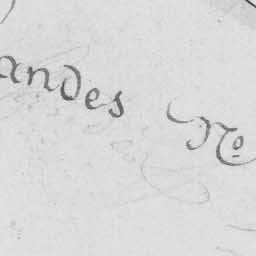 andes No